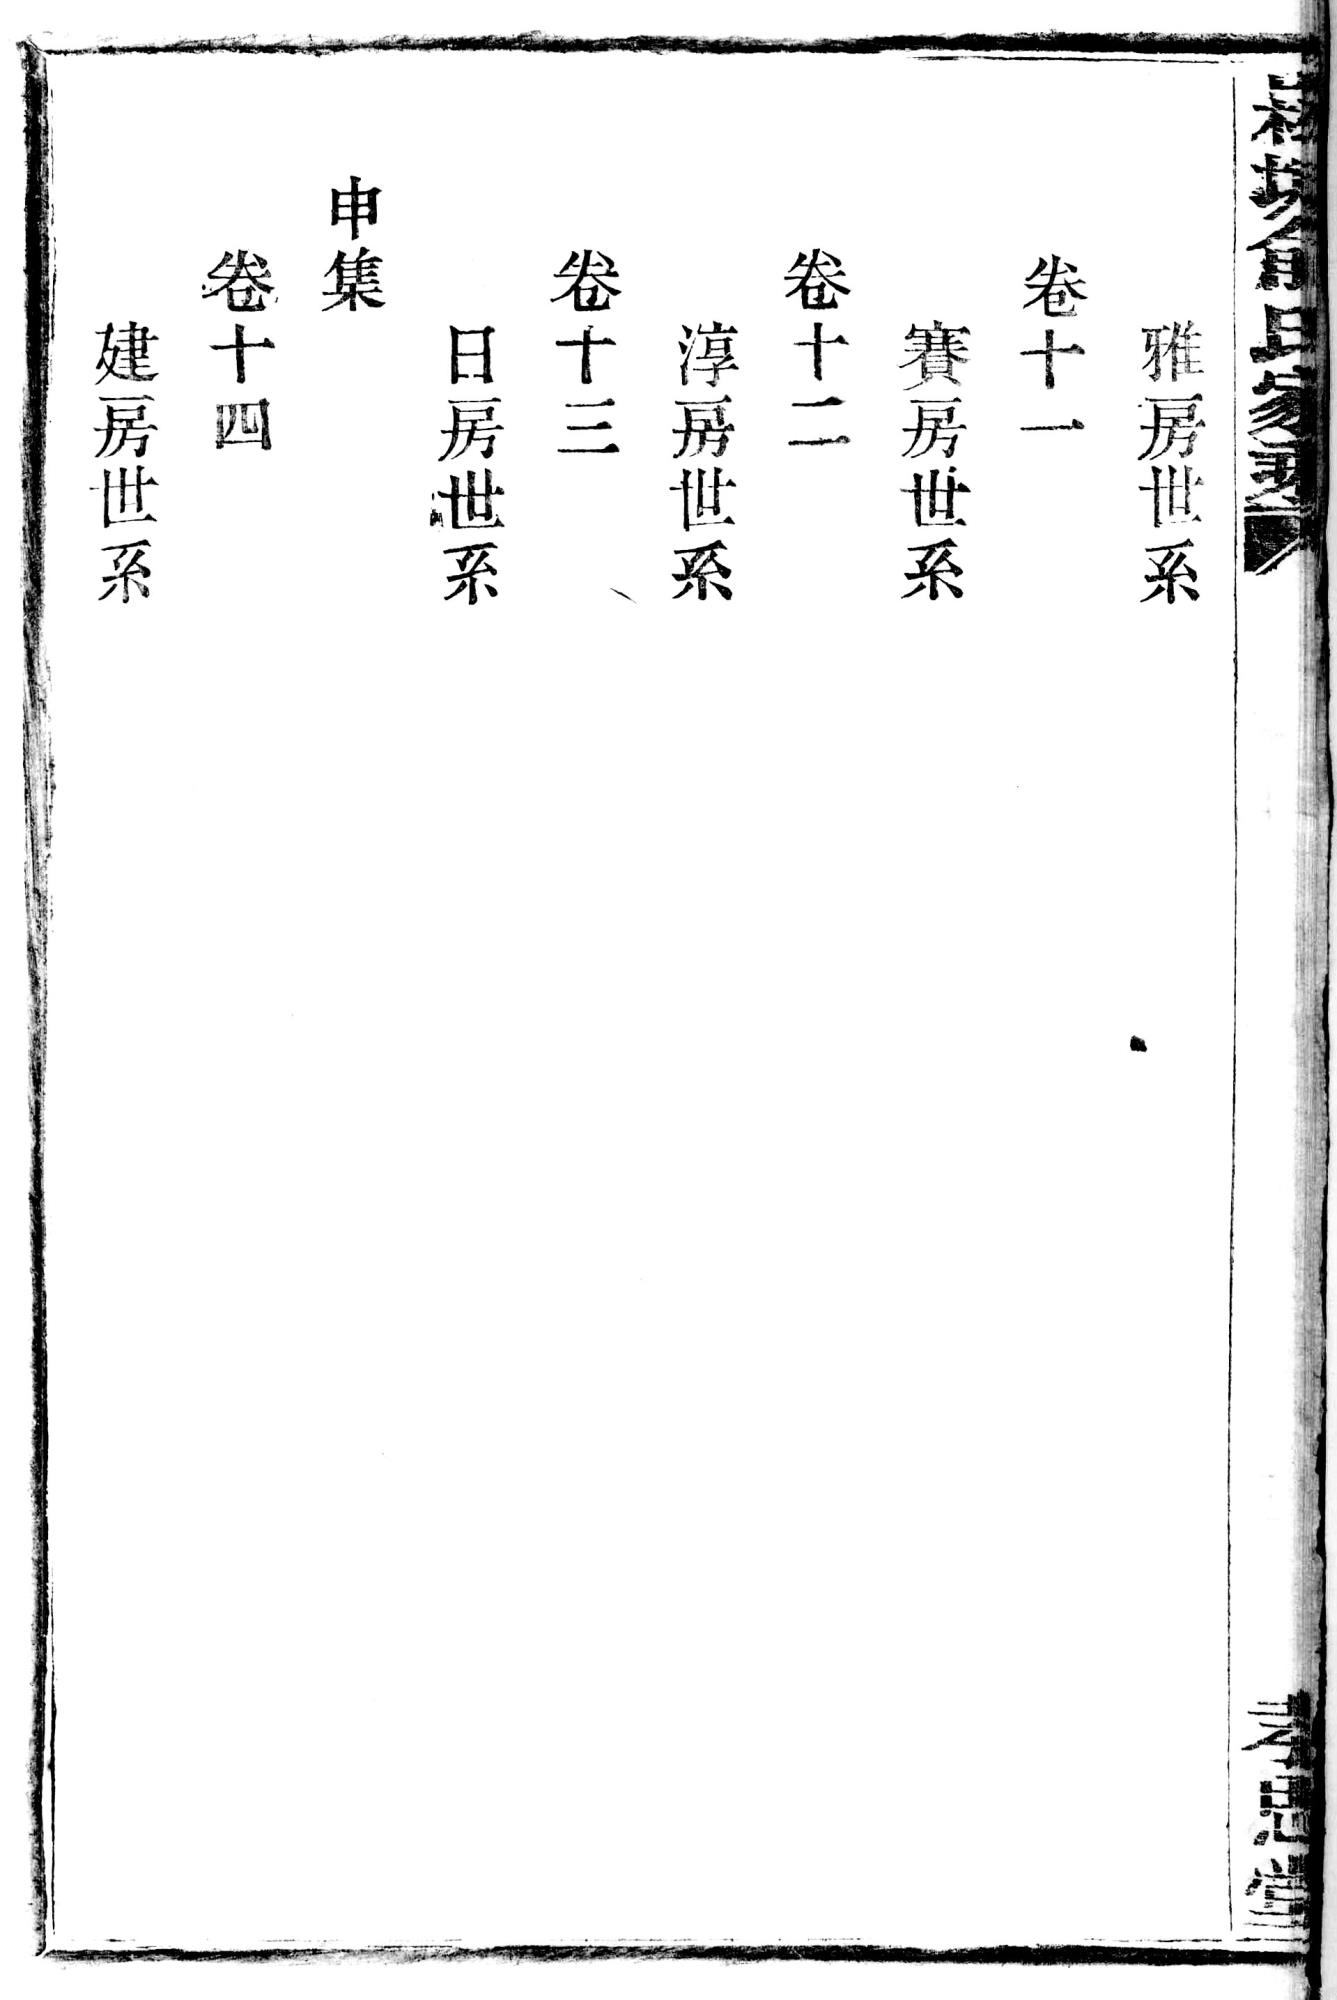 氏家
孝思堂
雅房世系
卷十一
賽房世系
卷十二
淳房世系
卷十三
日房世系
申集
卷十四
建房世系